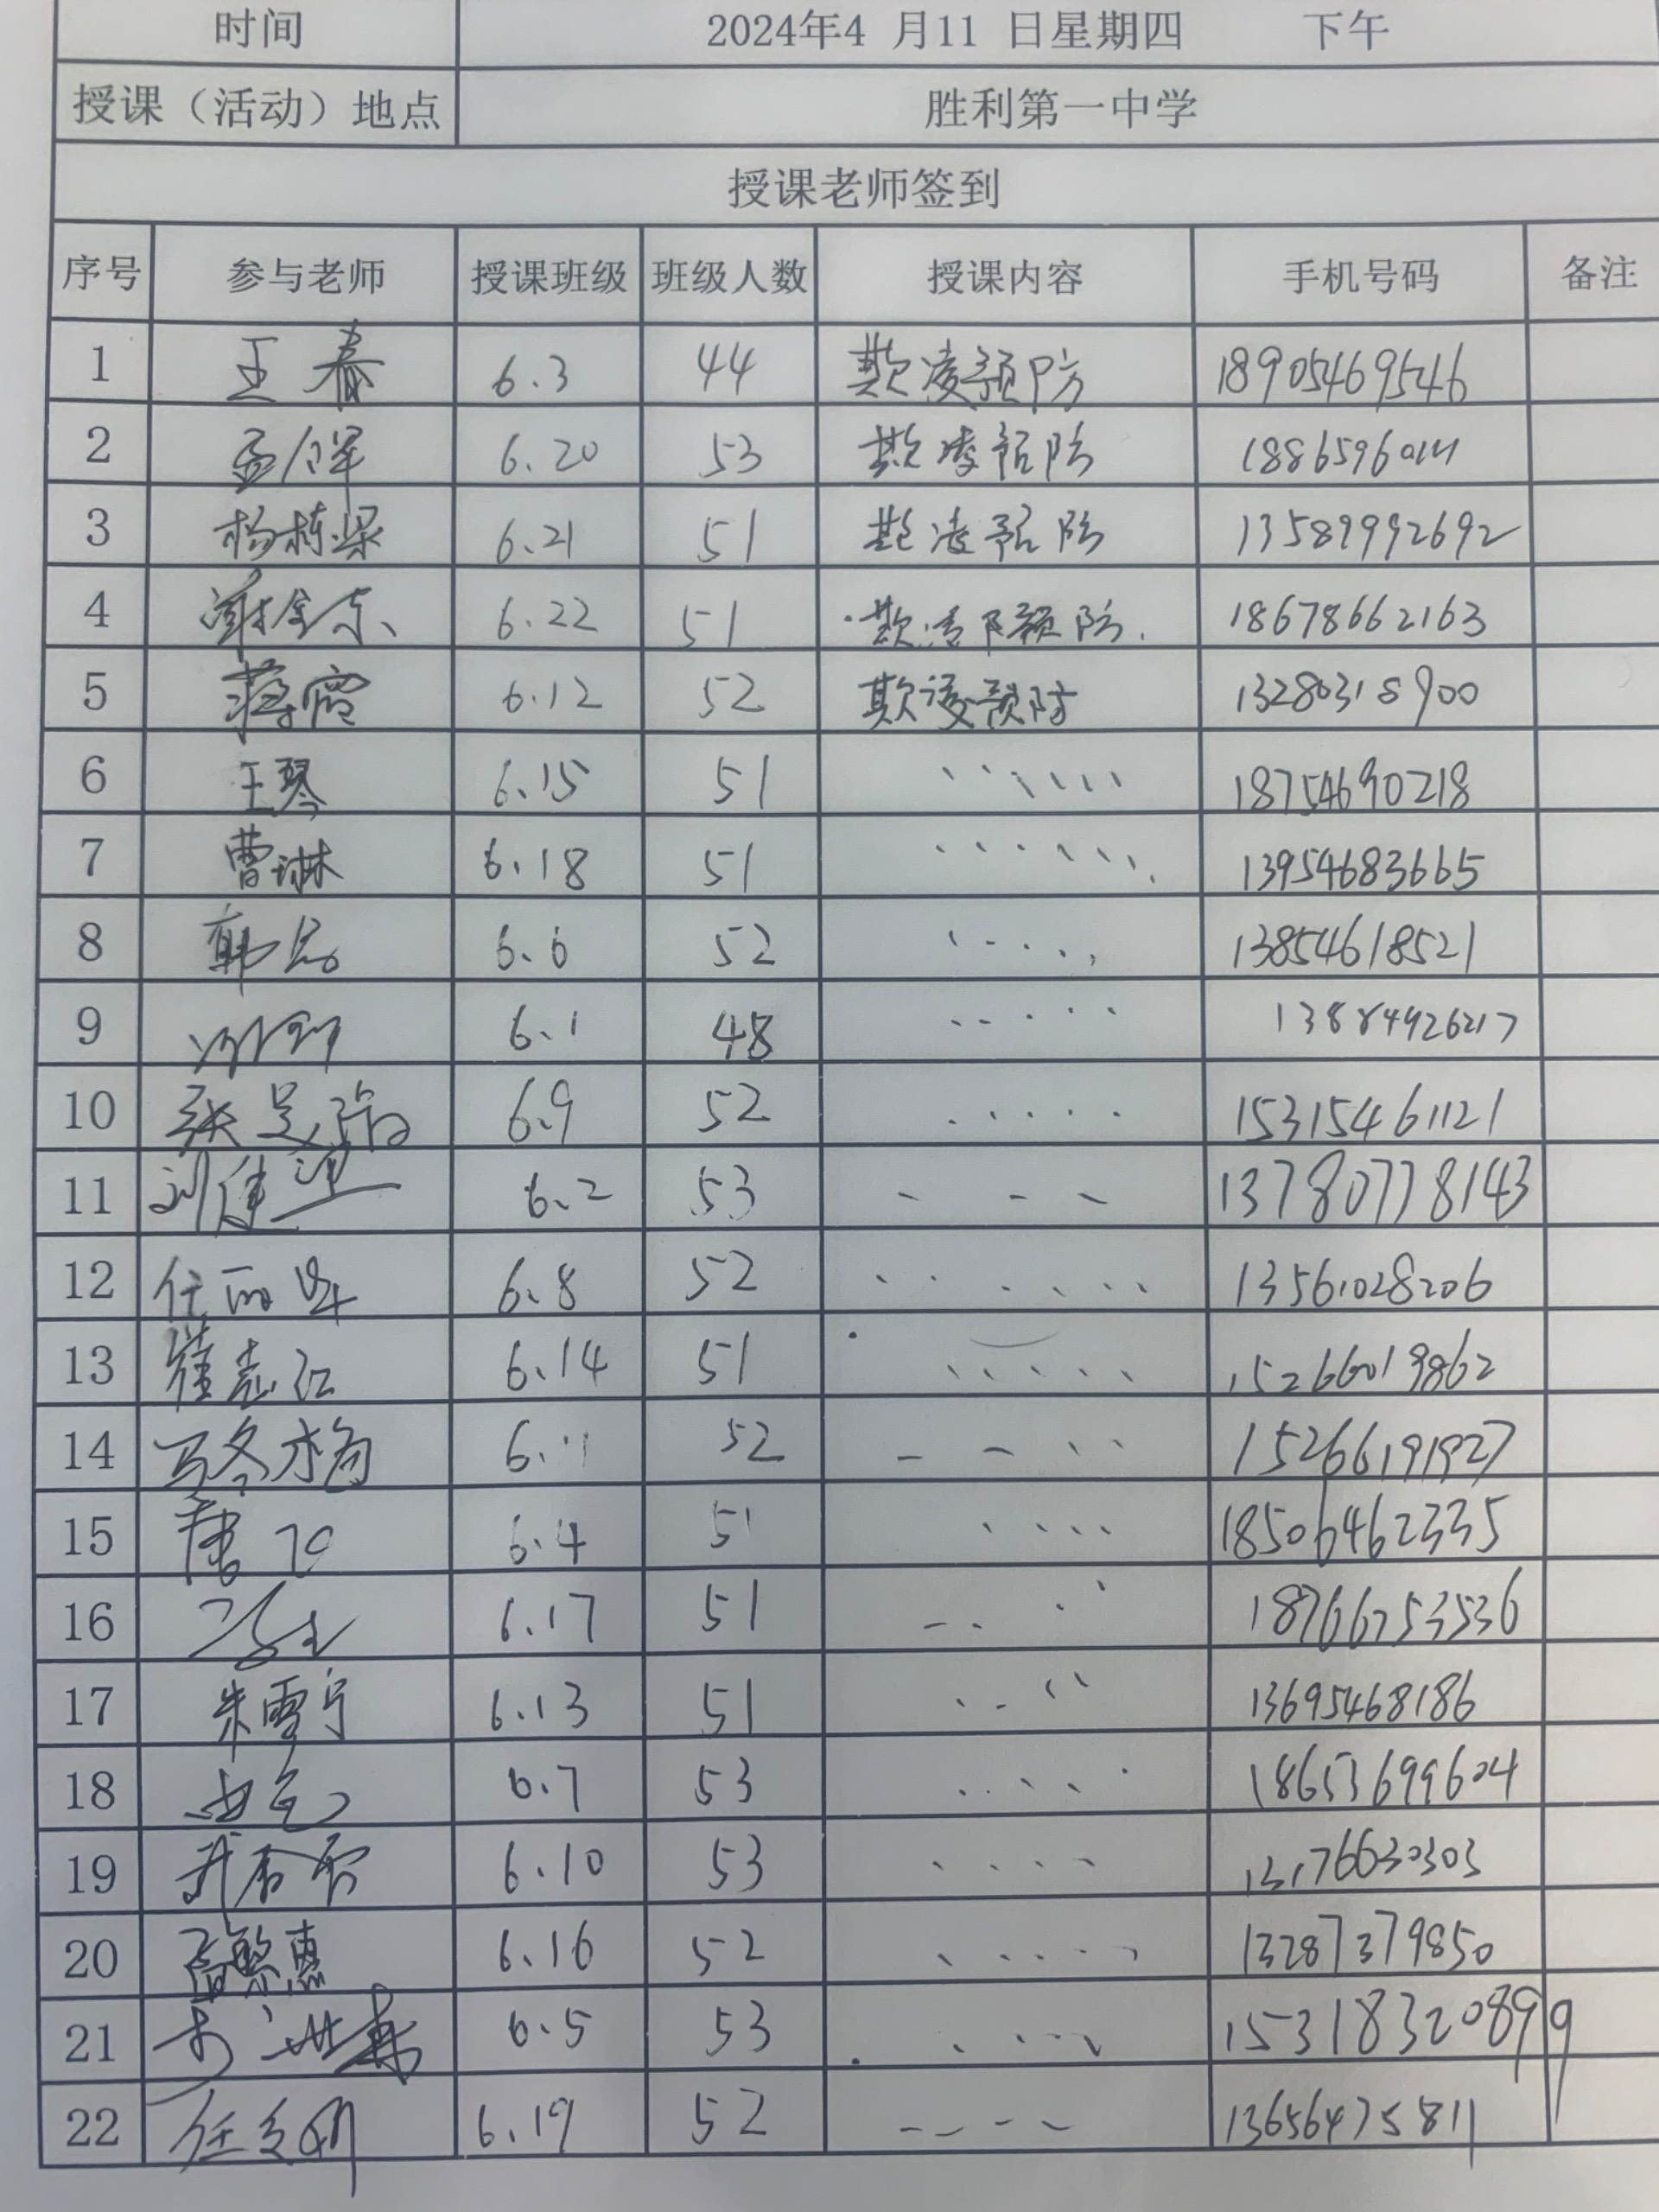 时间 2024年4 月11 日星期四 下午
授课（活动）地点 胜利第一中学
授课老师签到
序号 参与老师 授课班级 班级人数 授课内容 手机号码 备注
1 王春 6.3 44 欺凌预防 18905469546
2 6.20 53 欺凌预防
3 杨栋梁 6.21 51 欺凌预防 13589992692
4 6.22 51 欺凌预防 18678662163
5 蒋霞 6.12 52 欺凌预防 13280318900
6 王琴 6.15 51 18754690218
7 曹琳 6.18 51 13954683665
8 6.6 52 13854618521
9 6.1 48 13884926217
10 6.9 52 15315461121
11 6.2 53 13780778143
12 6.8 52 13561028206
13 崔志江 6.14 51 15266019862
14 52 15266191927
15 6.4 51 18506462335
16 6.17 51 18766753536
17 朱雪宁 6.13 51 13695468186
18 6.7 53 18653699604
19 6.10 53 13176630303
20 6.16 52 13287379850
21 6.5 53 153183208999
22 6.19 52 13656475811